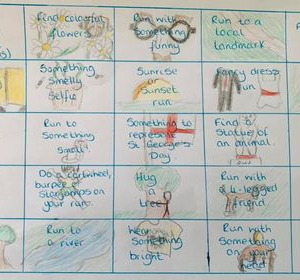 Find colorful
flowers
Run with
Something
funny
Run to a
local
landmark
Something
Smelly
Selfie
Sunrise
or
Sunset
run
Fancy dress
run
Run to
Something
Small
Something to
represent
St George's
Day
Find a
Statue of
an animal.
Do a Cartwheel,
burpee &
Starjumps on
your run.
Hug
a
tree
Run with
a 4-legged
friend
Run to
a river
Wear
Something
bright
Run with
Something
on your
head